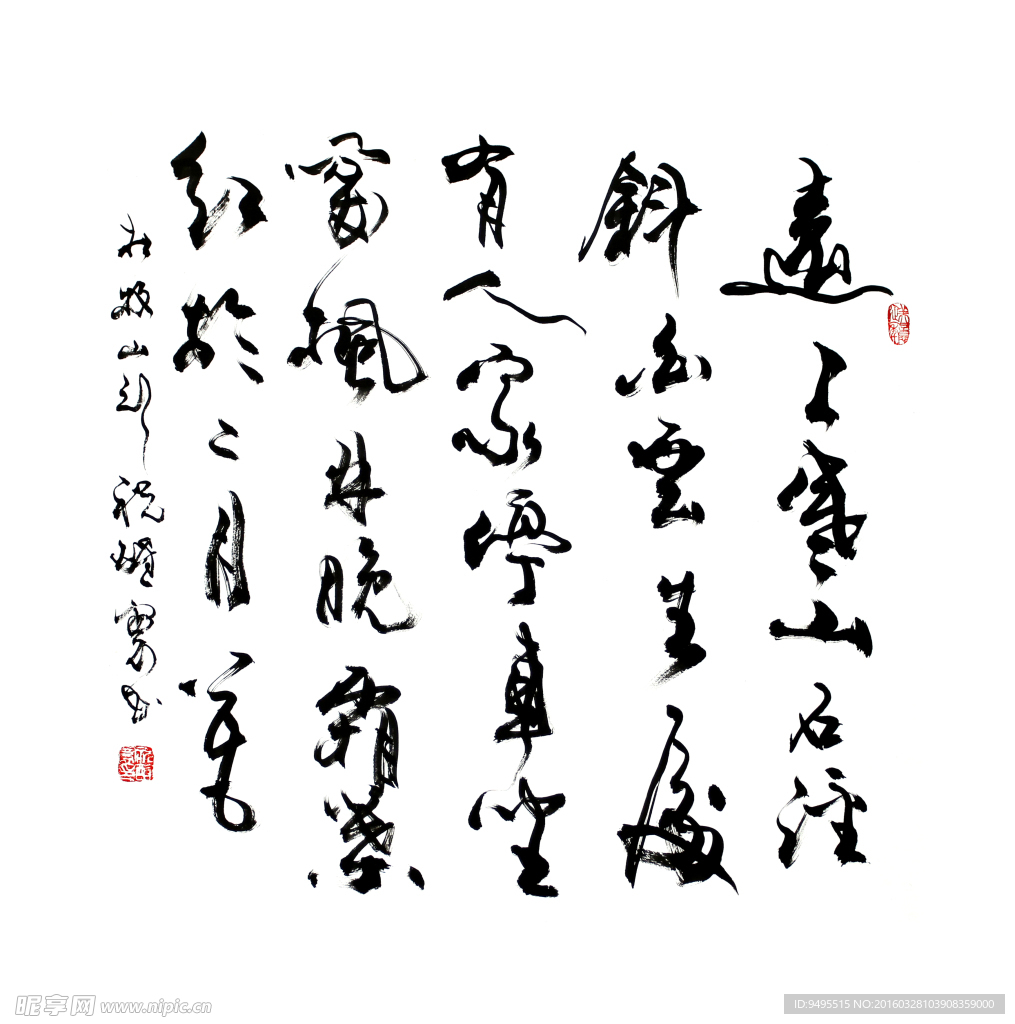 遠上寒山石徑
斜白雲生處
有人家停車坐
愛楓林晚霜葉
紅於二月花
杜牧山行
昵享网 www.nipic.cn
ID:9495515 NO:20160328103908359000